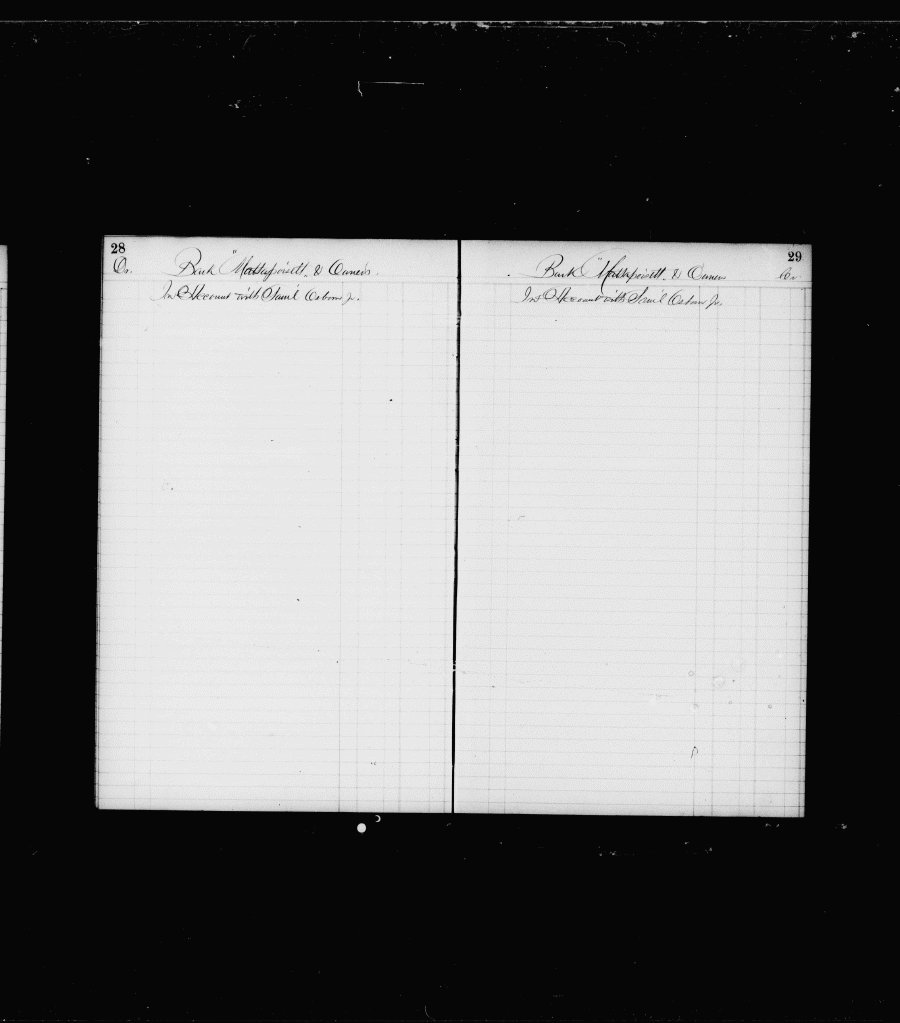 28
Dr. Bark "Mattapoisett & Owners.
In Account with Sam'l Osborn Jr.
29
Bark "Mattapoisett & Owners Cr
In Account with Sam'l Osborn Jr.